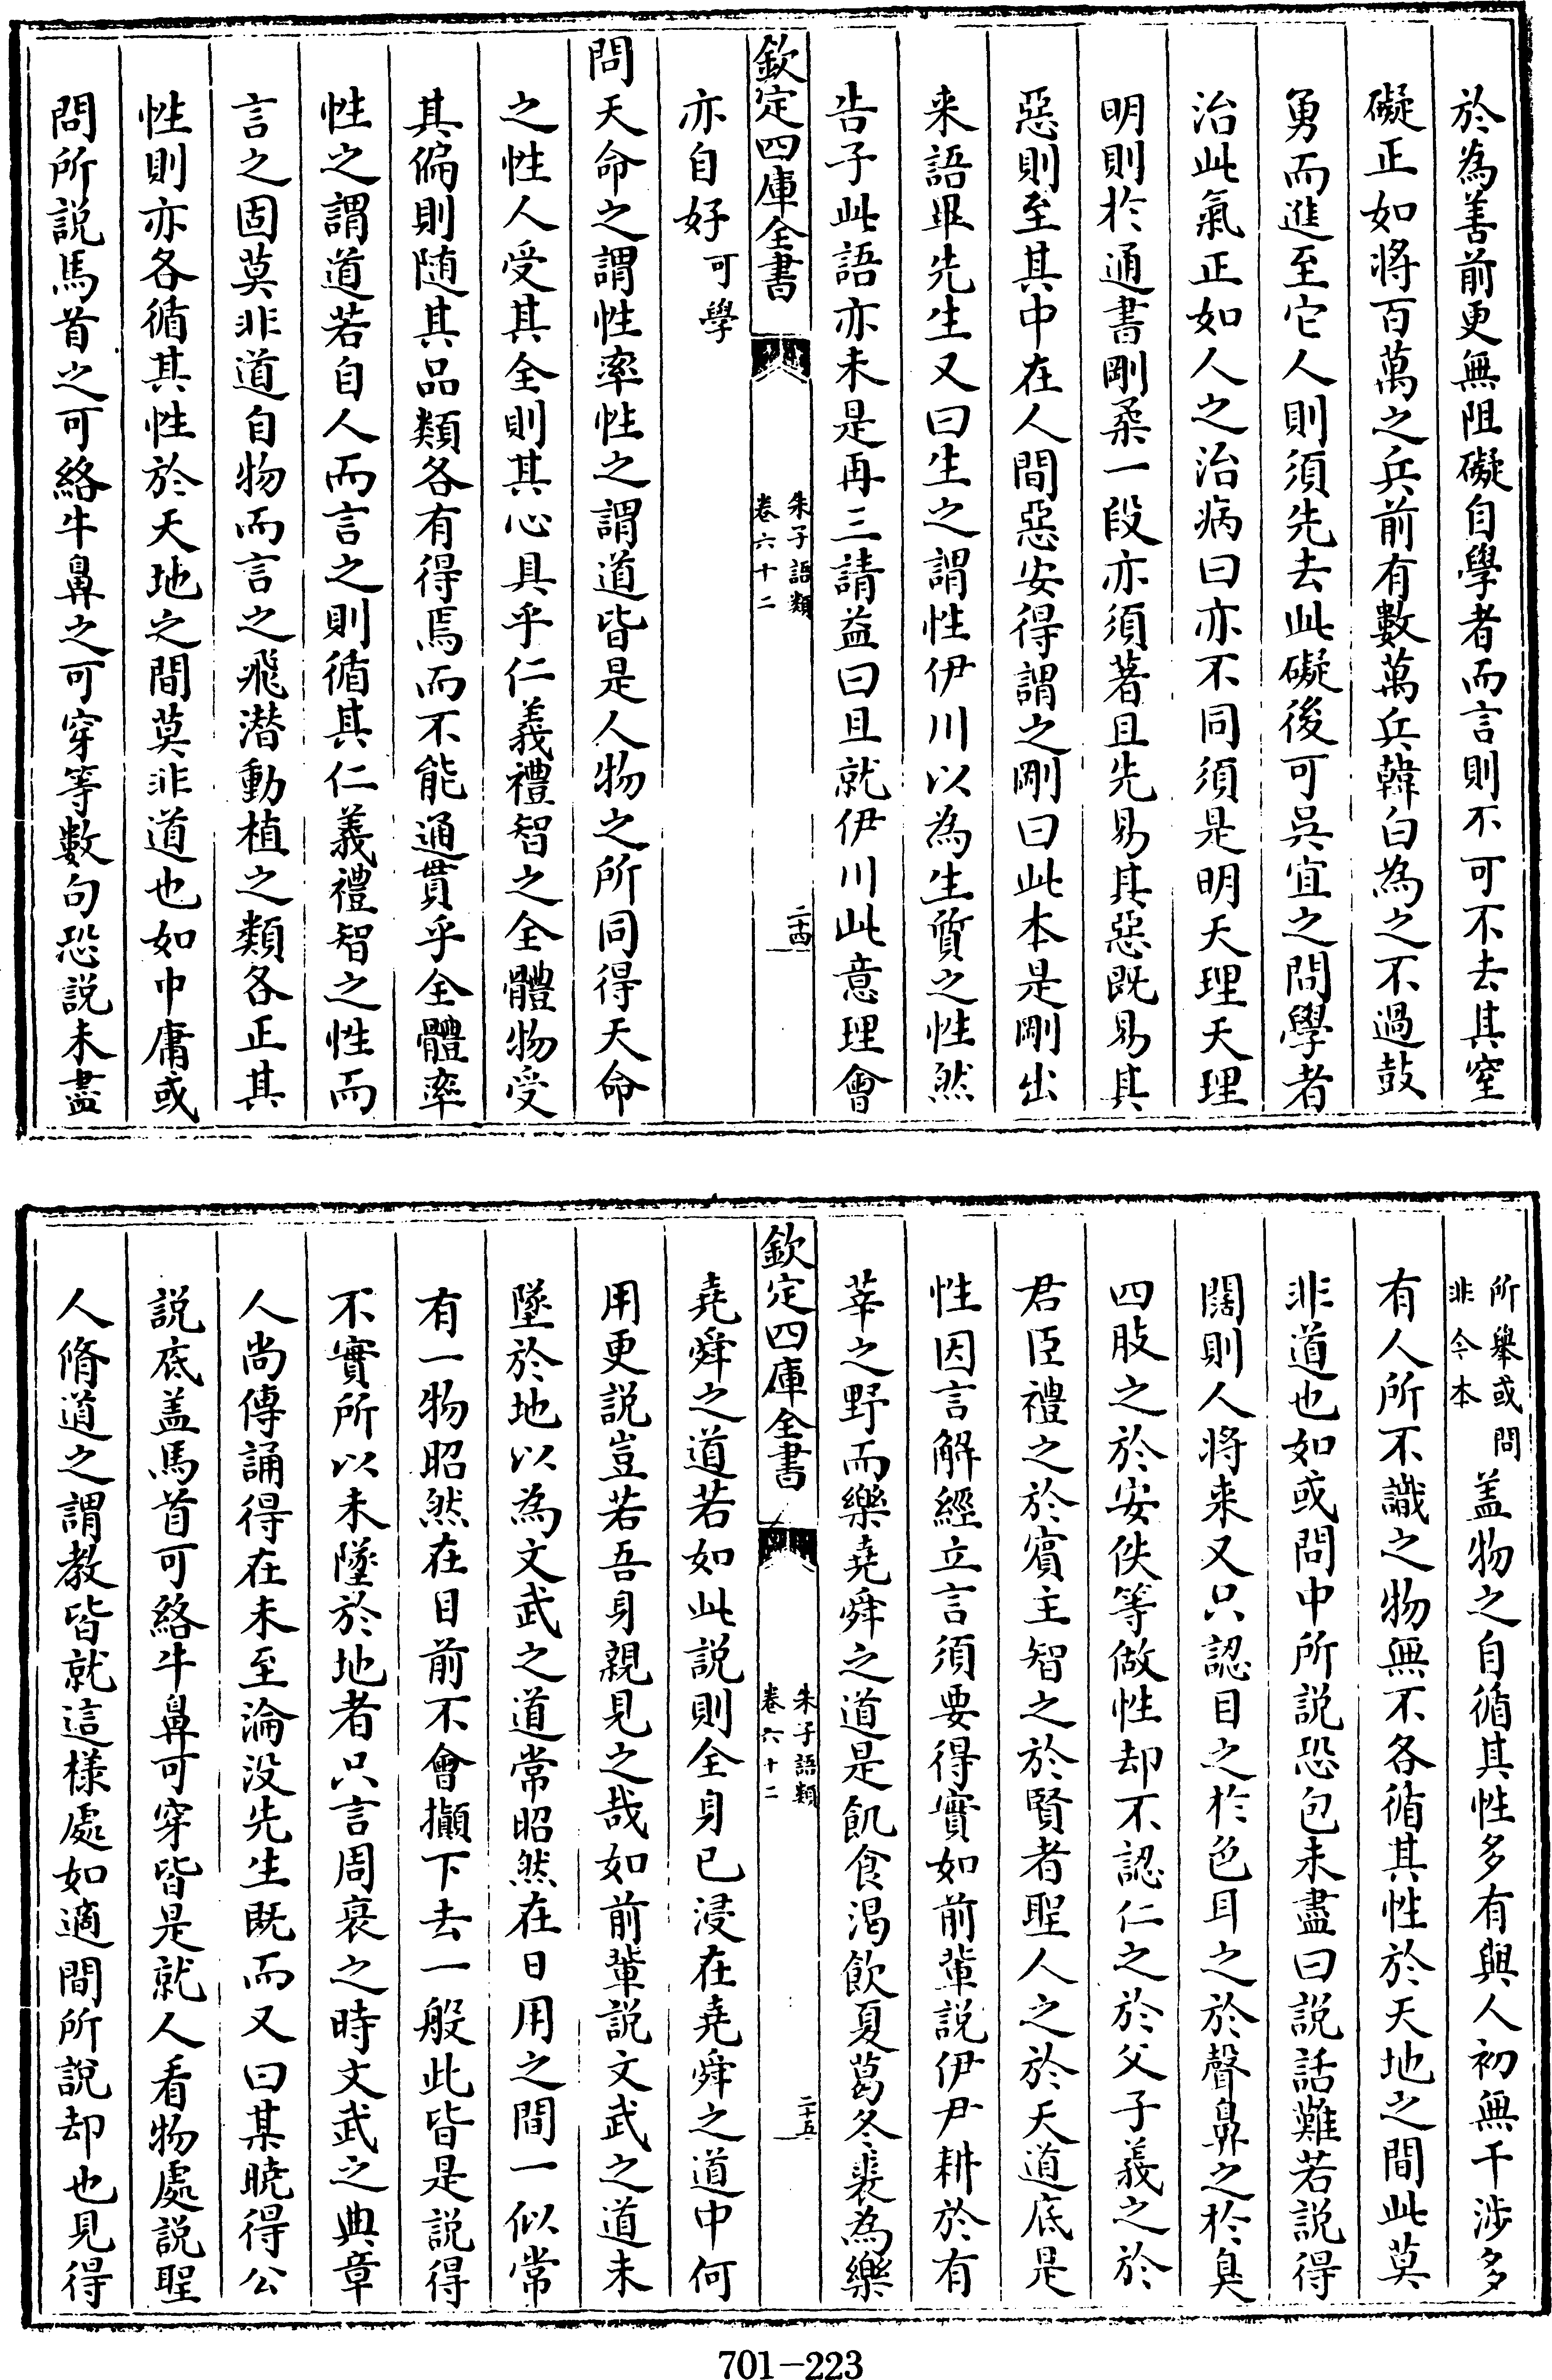 於為善前更無阻礙自學者而言則不可不去其窒
礙正如將百萬之兵前有數萬兵韓白為之不過鼓
勇而進至它人則須先去此礙後可吳宜之問學者
治此氣正如人之治病曰亦不同須是明天理天理
明則於通書剛柔一段亦須著且先易其惡既易其
惡則至其中在人問惡安得謂之剛曰此本是剛出
来語畢先生又曰生之謂性伊川以為生質之性然
告子此語亦未是再三請益曰且就伊川此意理會
欽定四庫全書
朱子語類
卷六十二
二十四
亦自好可學
問天命之謂性率性之謂道皆是人物之所同得天命
之性人受其全則其心具乎仁義禮智之全體物受
其偏則随其品類各有得焉而不能通貫乎全體率
性之謂道若自人而言之則循其仁義禮智之性而
言之固莫非道自物而言之飛潜動植之類各正其
性則亦各循其性於天地之間莫非道也如中庸或
問所説馬首之可絡牛鼻之可穿等數句恐説未盡
所舉或問
非今本
盖物之自循其性多有與人初無干涉多
有人所不識之物無不各循其性於天地之間此莫
非道也如或問中所説恐包未盡曰説話難若説得
闊則人將来又只認目之於色耳之於聲鼻之於臭
四肢之於安佚等做性却不認仁之於父子義之於
君臣禮之於賓主智之於賢者聖人之於天道底是
性因言解經立言須要得實如前輩説伊尹耕於有
莘之野而樂堯舜之道是飢食渴飲夏葛冬裘為樂
欽定四庫全書
朱子語類
卷六十二
二十五
堯舜之道若如此説則全身已浸在堯舜之道中何
用更説豈若吾身親見之哉如前輩説文武之道未
墜於地以為文武之道常昭然在日用之間一似常
有一物昭然在目前不會攧下去一般此皆是説得
不實所以未墜於地者只言周衰之時文武之典章
人尚傳誦得在未至淪没先生既而又曰某曉得公
説底盖馬首可絡牛鼻可穿皆是就人看物處説聖
人脩道之謂教皆就這樣處如適間所說却也見得
701-223